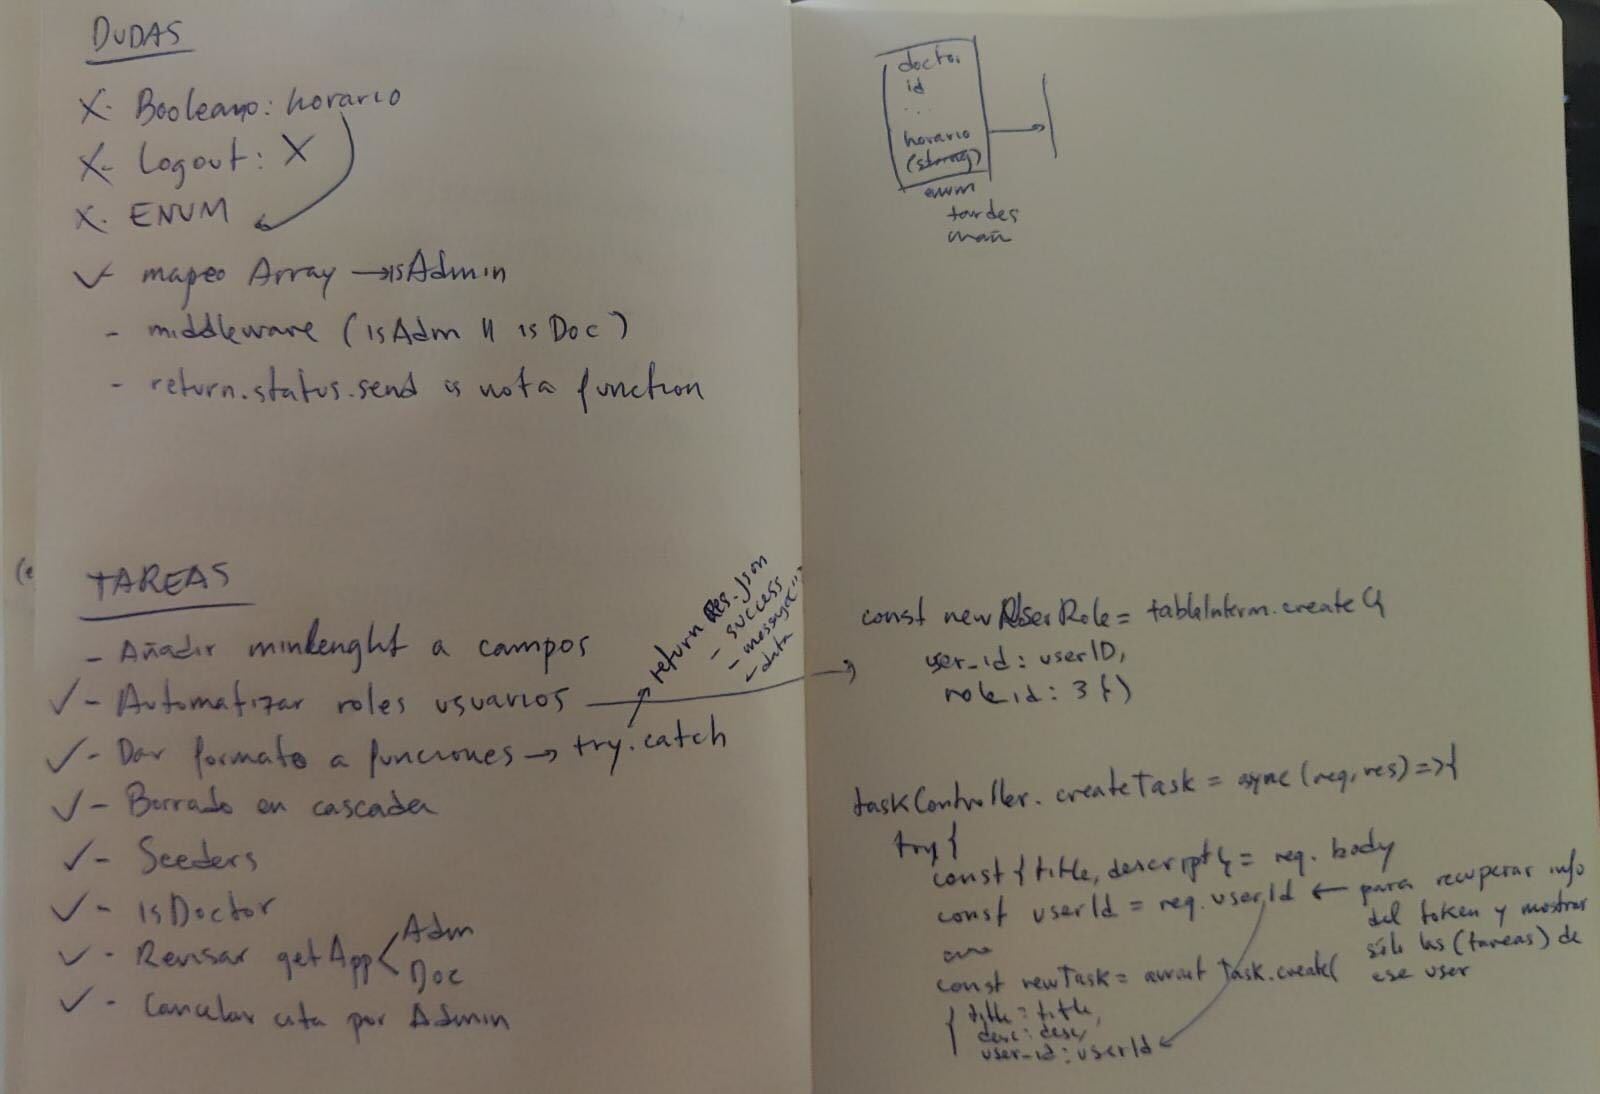 DUDAS
X. Booleano: horario
X- Logout: X
X. ENUM
✓ mapeo Array → isAdmin
- middleware (isAdm || is Doc)
- return.status.send is not a function
TAREAS
- Añadir minlenght a campos
✓ - Automatizar roles usuarios
✓ - Dar formato a funciones → try.catch
return Res.json
- success
- message
- data
✓ - Borrado en cascada
✓ - Seeders
✓ - isDoctor
✓ - Revisar getApp < Adm
Doc
✓ - Cancelar cita por Admin
doctor
id
...
horario
(string)
enum
tardes
mañ
const newUserRole = tablaInterm.create({
user_id: userID,
role_id: 3 })
taskController.createTask = async (req, res) => {
try {
const { title, descript } = req. body
const userId = req. user_Id ← para recuperar info
del token y mostrar
sólo las (tareas) de
ese user
const newTask = await Task.create(
{ title = title,
desc: desc,
user_id: userId